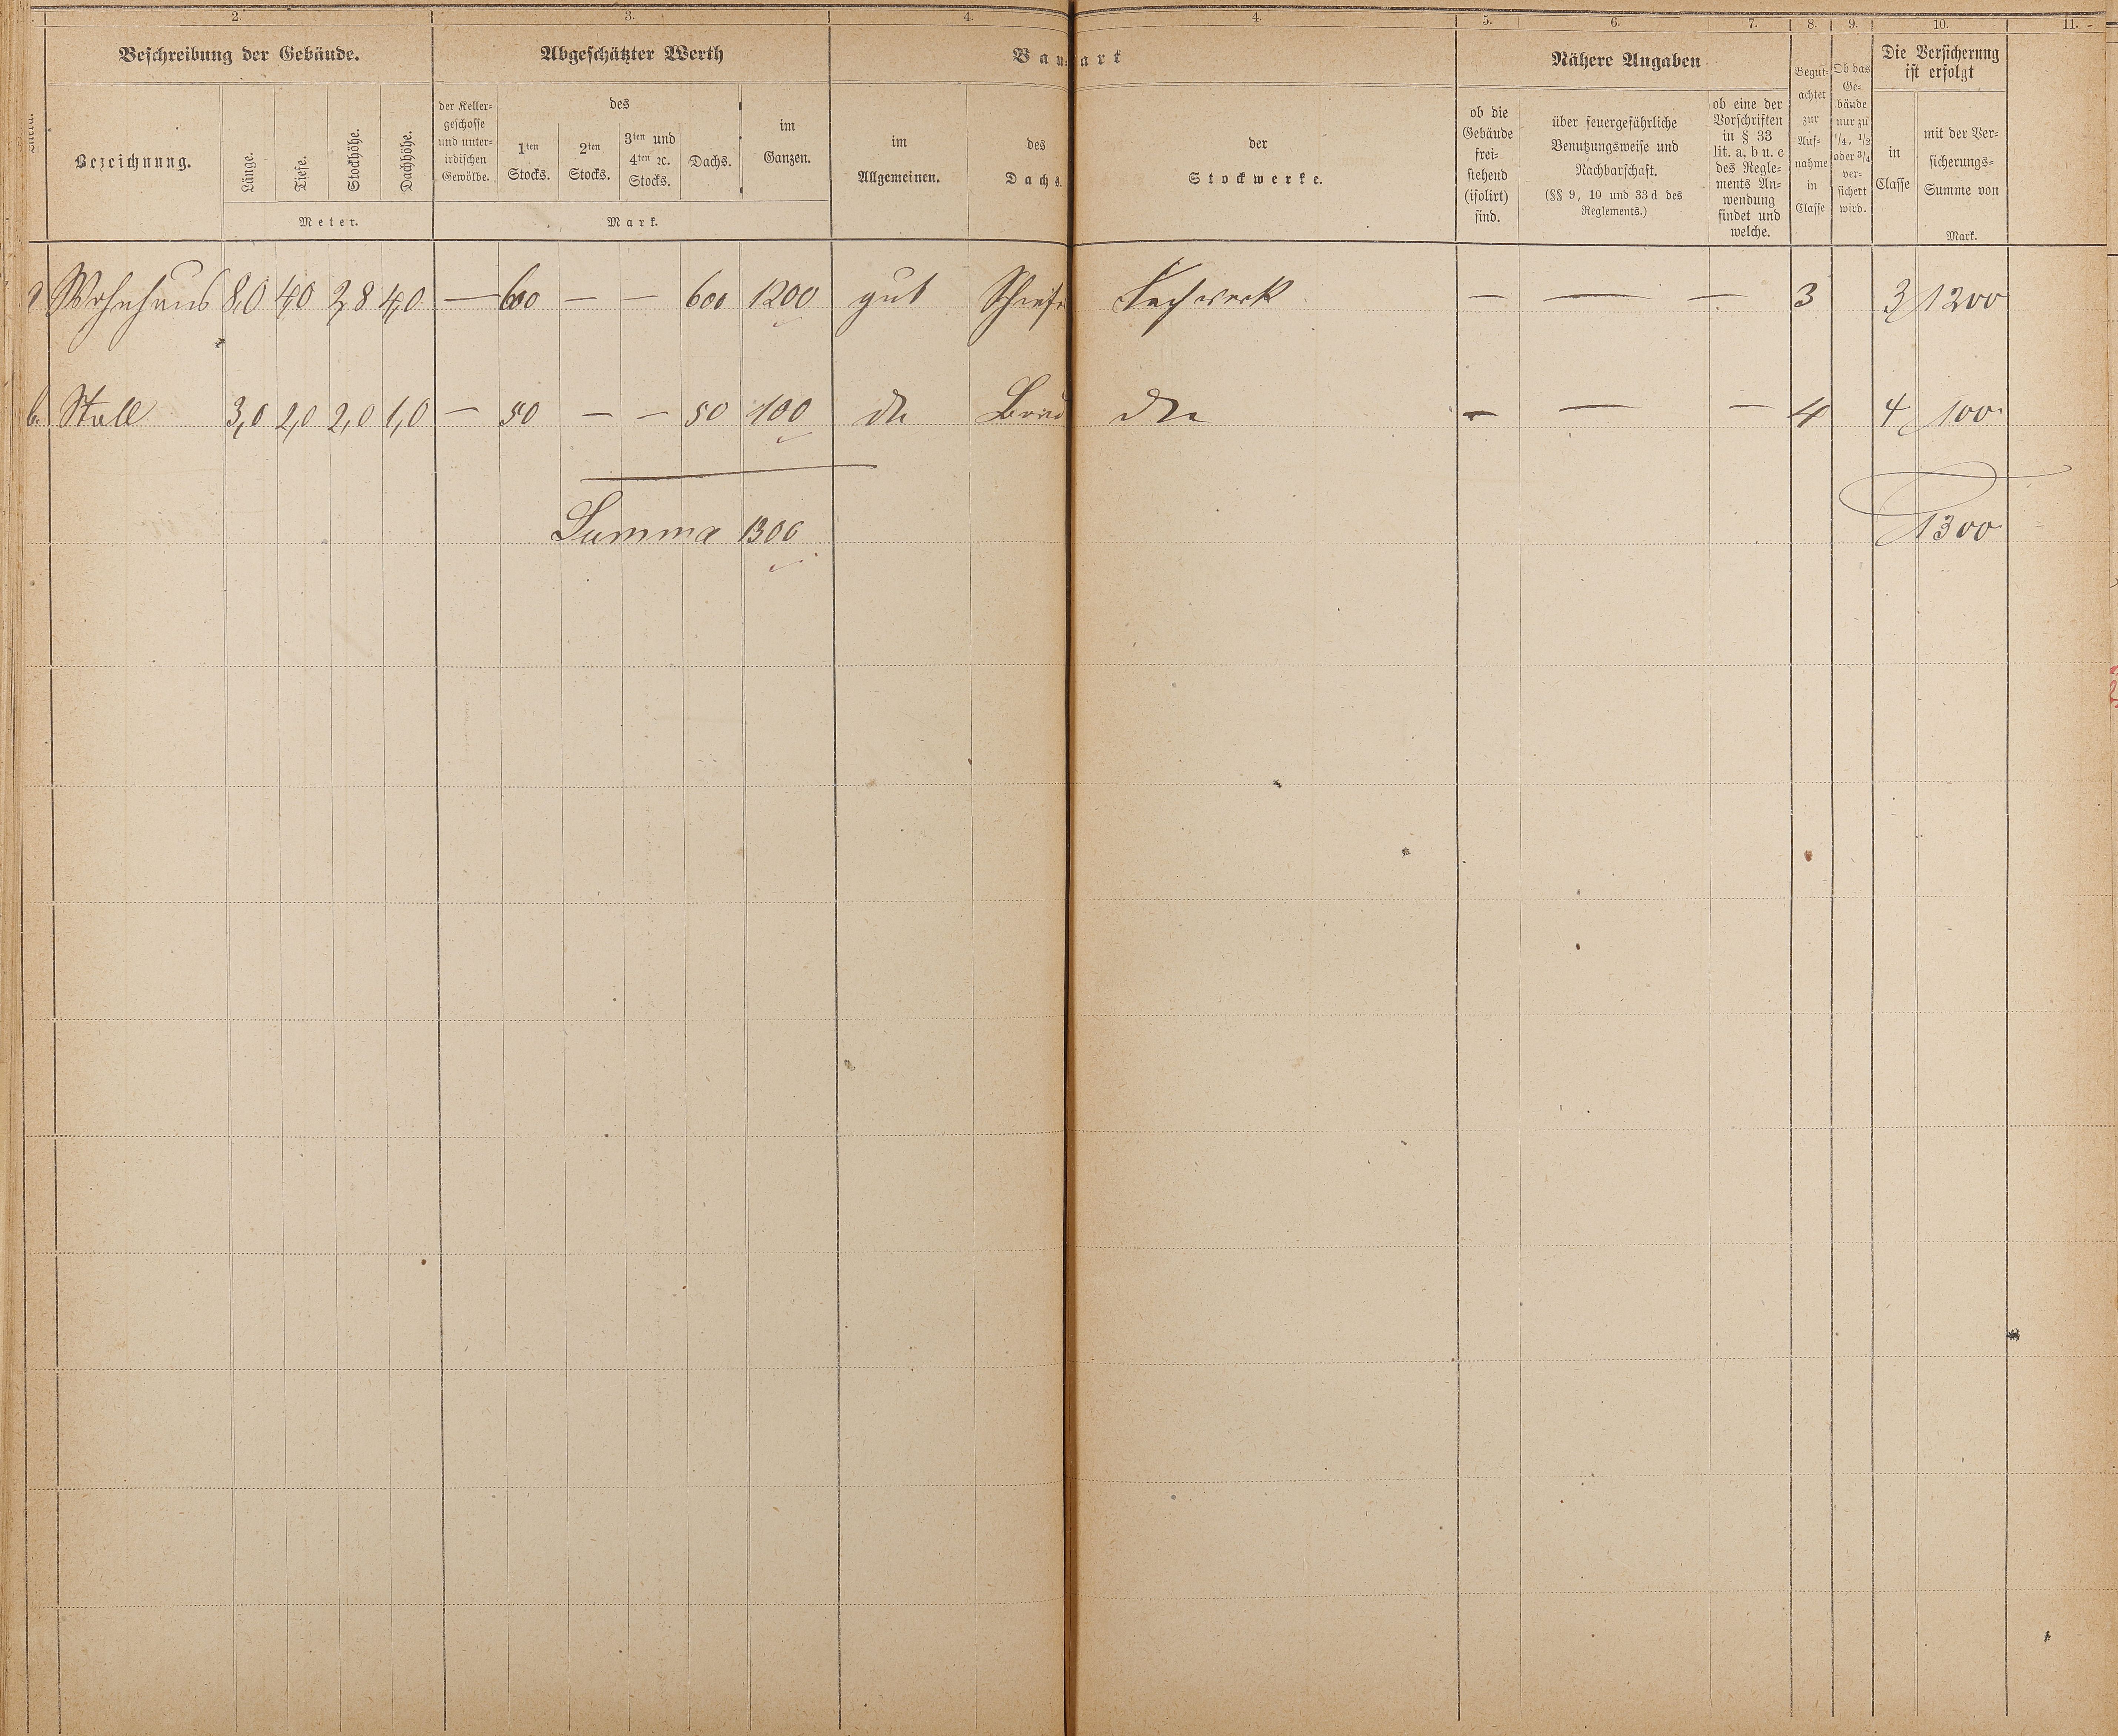 2. 3. 4. 4. 5. 6. 7. 8. 9. 10. 11.
Beschreibung der Gebäude. Abgeschätzter Werth Bau- art Nähere Angaben Die Versicherung ist erfolgt
Bezeichnung. Länge. Tiefe. Stockhöhe. Dachhöhe.
Meter.
der Keller-
geschosse
und unter-
irdischen
Gewölbe.
des
1ten
Stocks.
2ten
Stocks.
3ten und
4ten ꝛc.
Stocks.
Dachs.
im
Ganzen.
Mark.
im
Allgemeinen.
des
Dachs.
der
Stockwerke.
ob die
Gebäude
frei-
stehend
(isolirt)
sind.
über feuergefährliche
Benutzungsweise und
Nachbarschaft.
(§§ 9, 10 und 33 d des
Reglements.)
ob eine der
Vorschriften
in § 33
lit. a, b u. c
des Regle-
ments An-
wendung
findet und
welche.
Begut-
achtet
zur
Auf-
nahme
in
Classe
Ob das
Ge-
bäude
nur zu
1/4, 1/2
oder 3/4
ver-
sichert
wird.
in
Classe
mit der Ver-
sicherungs-
Summe von
Mark.
Wohnhaus 8,0 4,0 2,8 4,0 — 600 — — 600 1200 gut Schief Fachwerk — — — 3 3 1200
b. Stall 3,0 2,0 2,0 1,0 — 50 — — 50 100 do — — — 4 4 100
Summa 1300 1300